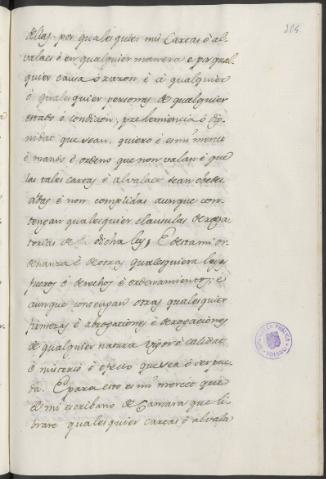 304
dellas, por qualesquier mis Cartas ó al-
valaes ó en qualquier manera é por qual-
quier causa ó razon é á qualquier
ó qualesquier personas de qualquier
estado ó condicion, preheminencia ó Dig-
nidat que sean, quiero é es mi merced
é mando é ordeno que non valan é que
las tales cartas é alvalaes sean obede-
cidas é non complidas aunque con-
tengan qualesquier clausulas deroga-
torias de la dicha ley, É desta mi or-
denanza é de otras qualesquiera leyes
fueros é derechos é ordenamientos, é
aunque contengan otras qualesquier
firmezas é abrogaciones é derogaciones
de qualquier natura vigor é calidat
ó misterio é efecto que sea ó ser pue-
da. É para esto es mi merced que
el mi escribano de Camara que li-
brare qualesquier cartas é alvala